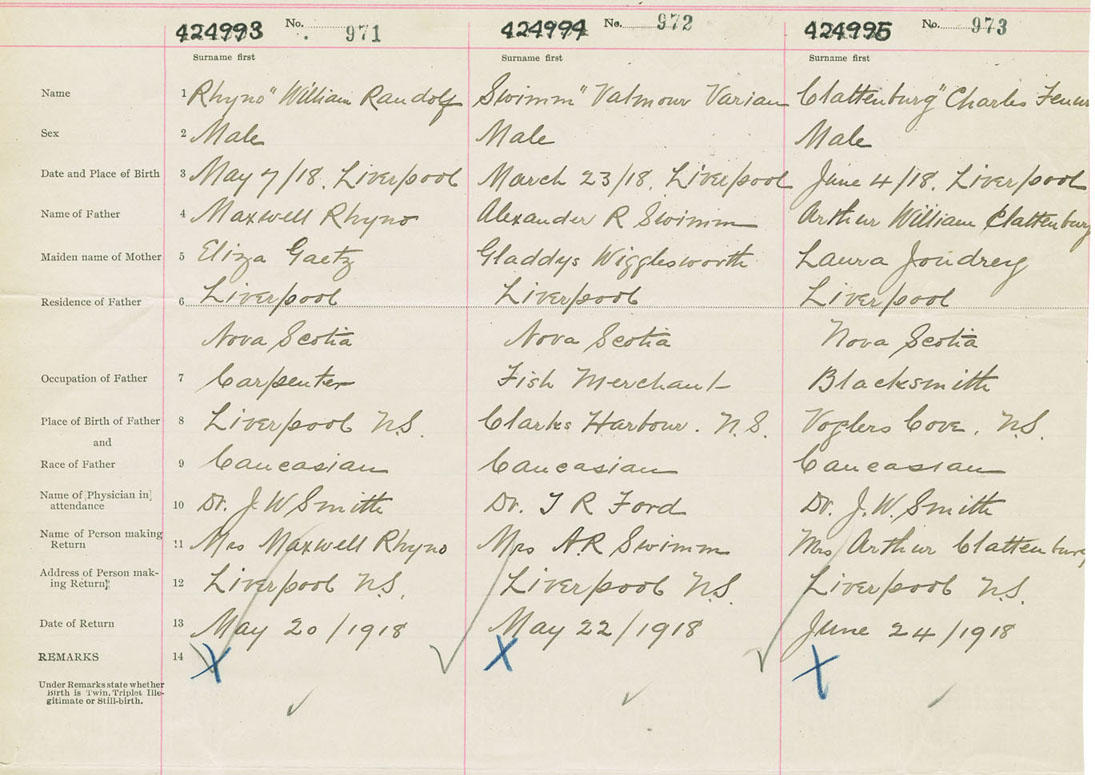 424993 No. 971 424994 No. 972 424995 No. 973
Surname first Surname first Surname first
Name 1 Rhyno" William Randolf Swimm" Valmour Varian Clattenburg" Charles
Sex 2 Male Male Male
Date and Place of Birth 3 May 7/18. Liverpool March 23/18. Liverpool June 4/18. Liverpool
Name of Father 4 Maxwell Rhyno Alexander R Swimm Arthur William Clattenburg
Maiden name of Mother 5 Eliza Gaetz Gladdys Wigglesworth Laura Joudrey
Residence of Father 6 Liverpool Liverpool Liverpool
Nova Scotia Nova Scotia Nova Scotia
Occupation of Father 7 Carpenter Fish Merchant Blacksmith
Place of Birth of Father 8 Liverpool N.S. Clarks Harbour. N.S. Voglers Cove. N.S.
and
Race of Father 9 Caucasian Caucasian Caucasian
Name of Physician in
attendance 10 Dr. J.W Smith Dr. T R Ford Dr. J.W. Smith
Name of Person making
Return 11 Mrs Maxwell Rhyno Mrs AR Swimm Mrs Arthur Clattenburg
Address of Person mak-
ing Return 12 Liverpool N.S. Liverpool N.S. Liverpool N.S.
Date of Return 13 May 20/1918 May 22/1918 June 24/1918
REMARKS 14 X X X
Under Remarks state whether
Birth is Twin, Triplet Ille-
gitimate or Still-birth.